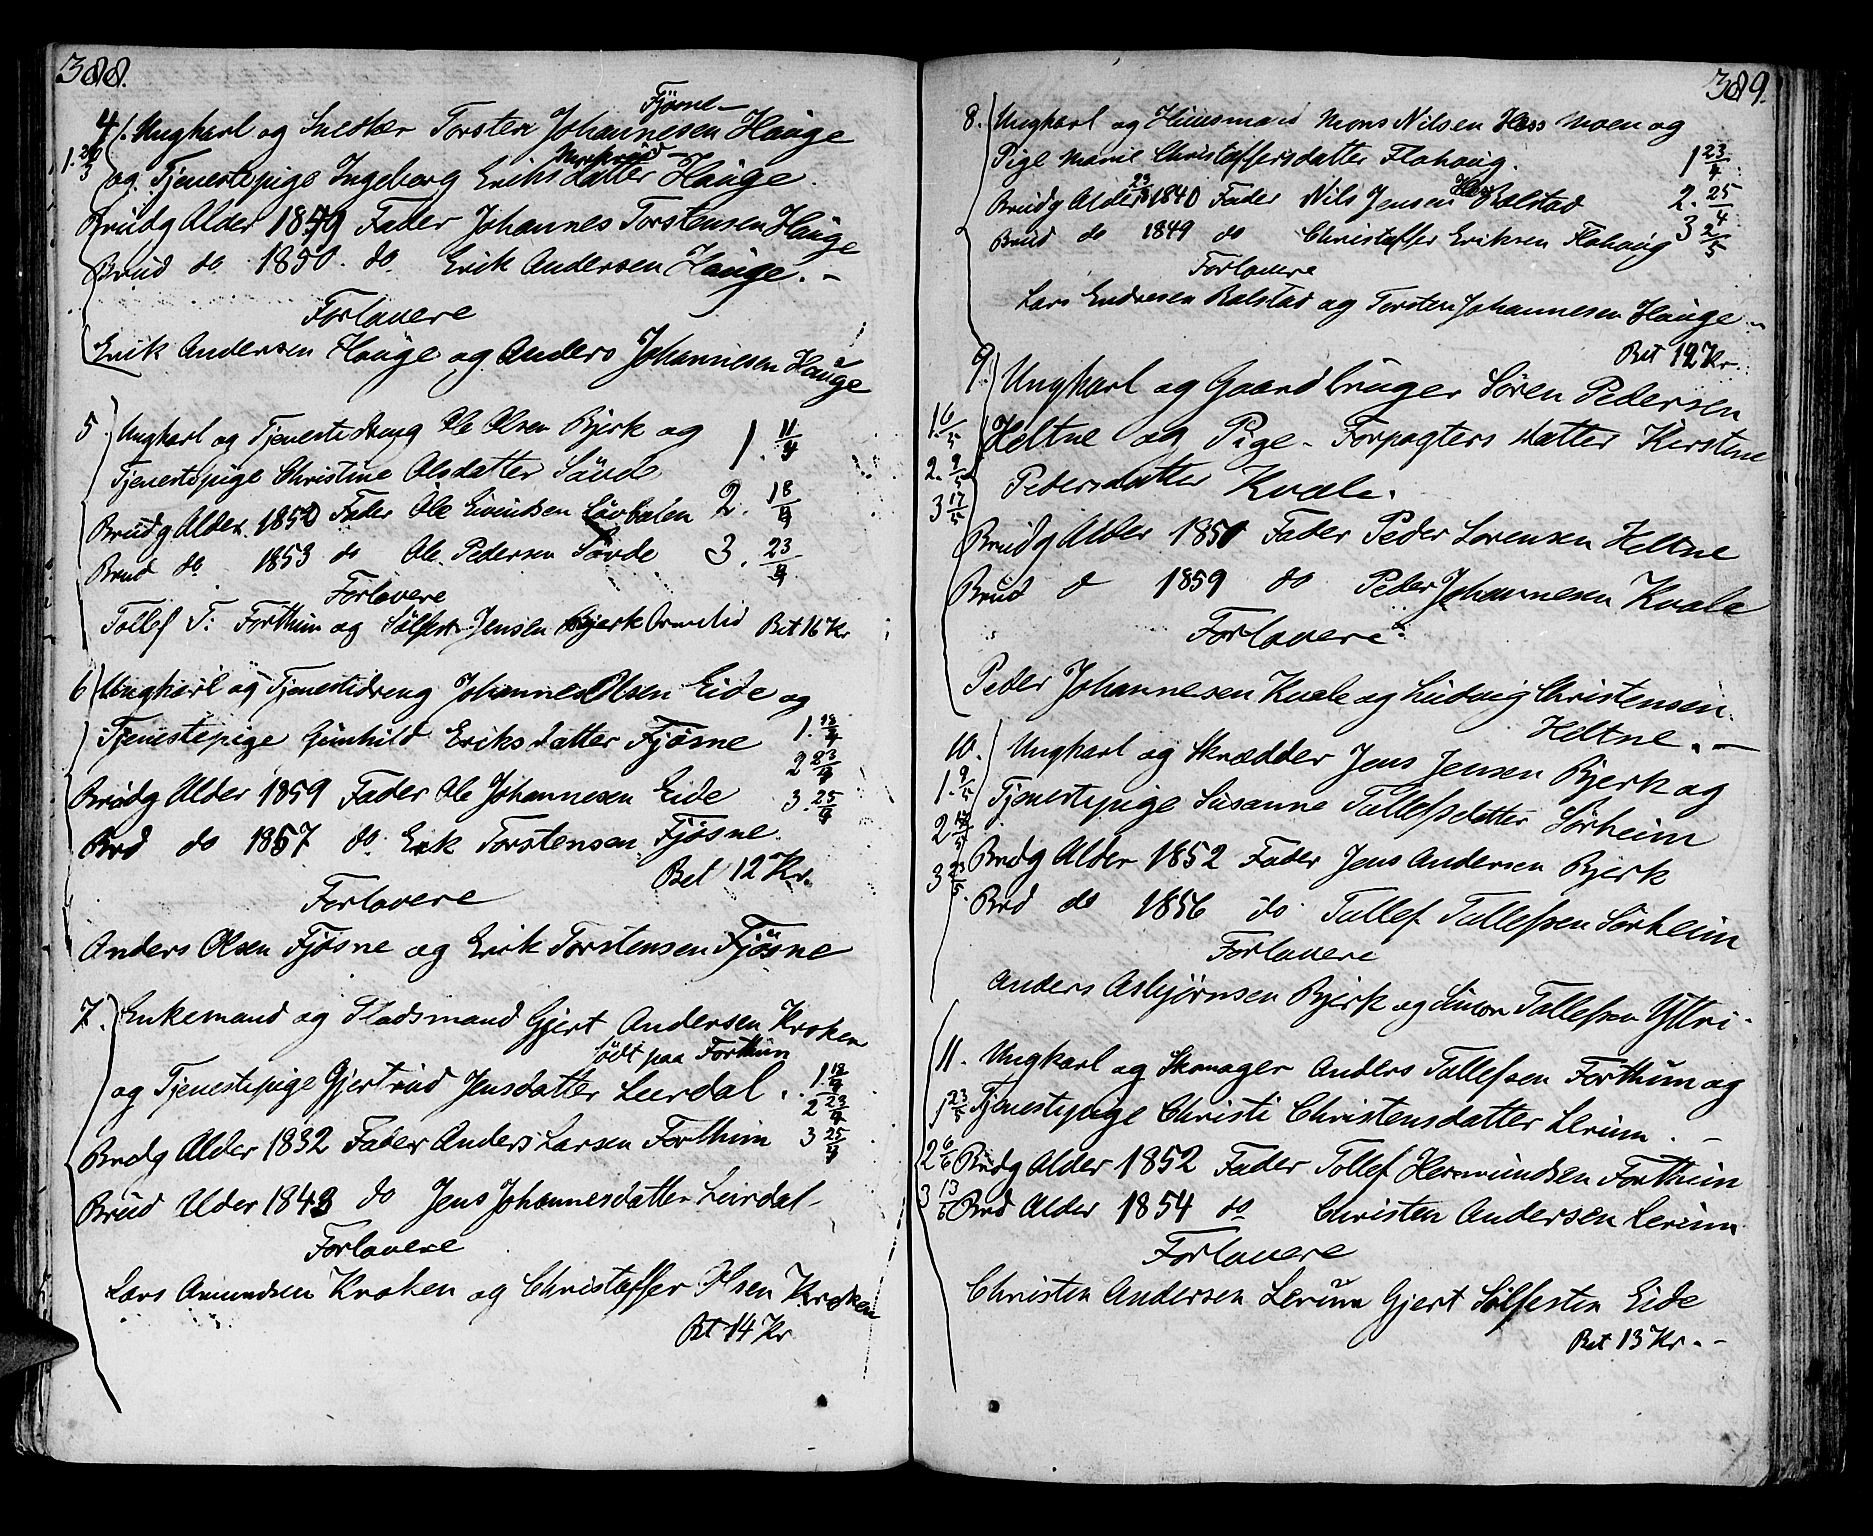 388.
Fjörne
4/. Ungkarl og Snedker Torsten Johannesen Hauge
1. 20/3
og Tjenestepige Ingeborg Eriksdatter Hauge.
Brudg Alder 1849 Fader Johannes Torstensen Hauge
Brud do 1850 do Erik Andersen Hauge. -
Forlovere
Erik Andersen Hauge og Anders Johannesen Hauge
5 Ungkarl og Tjenestedreng Ole Olsen Bjerk og 1. 11/4
Tjenestepige Christine Olsdatter Sövde
Brudg Alder 1850 Fader Ole Eivindsen 2. 18/4
Brud do 1853 do Ole Pedersen Sövde 3. 23/4
Forlovere
Tollef T: Forthun og Sölfest Jensen Bjerk Ormelid Bet 16 Kr
6 Ungkarl og Tjenestedreng Johannes Olsen Eide og
Tjenestepige Gunhild Eriksdatter Fjøsne 1. 18/4
2 23/4
Brudg Alder 1859 Fader Ole Johannesen Eide 3. 25/4
Brd do 1857 do Erik Torstensen Fjøsne
Bet 12 Kr.
Forlovere
Anders Olsen Fjøsne og Erik Torstensen Fjøsne
7. Enkemand og Pladsmand Gjert Andersen Kroken
födt paa Forthun
og Tjenestepige Gjertrud Jensdatter Leirdal. 1. 18/4
2 23/4
Brdg Alder 1832 Fader Anders Larsen Forthun 3 25/4
Brud Alder 1843 do Jens Johannesdatter Leirdal
Forlovere
Lars Amundsen Kroken og Christoffer Olsen Kroken
Bet 14 Kr
389.
8. Ungkarl og Huusmand Mons Nilsen Hess Moen og
Pige Marie Christoffersdatter Flohaug. 1 23/4
Brudg Alder 1840 Fader Nils Jensen Hess Balstad 2. 25/4
Brud do 1849 do Christoffer Eriksen Flohaug 3 2/5
Forlovere
Lars Endresen Balstad og Torsten Johannesen Hauge
Bet 12 Kr
9. Ungkarl og Gaardbruger Sören Pedersen
1. 6/5
Heltne og Pige - Forpagters datter Kirstine
2. 9/5
Pedersdatter Kvale.
3 17/5
Brudg Alder 1851 Fader Peder Sorensen Heltne
Brud do 1859 do Peder Johannesen Kvale
Forlovere
Peder Johannesen Kvale og Ludvig Christensen
Heltne. -
10. Ungkarl og Skrædder Jens Jensen Bjerk og
1. 9/5
Tjenestepige Susanne Tollefsdatter Sörheim
2
Brdg Alder 1852 Fader Jens Andersen Bjerk
3 23/5
Brd do 1856 do Tollef Tollefsen Sörheim
Forlovere
Anders Asbjørnsen Bjerk og Simon Tollefsen Yttri.
11. Ungkarl og Skomager Anders Tollefsen Forthun og
1 23/5
Tjenestepige Christi Christensdatter Lerum. -
2 6/6
Brudg Alder 1852 Fader Tollef Hermundsen Forthun
3 13/6
Brd Alder 1854 do Christen Andersen Lerum
Forlovere
Christen Andersen Lerum Gjert Sölfesten Eide
Bet 13 Kr. -